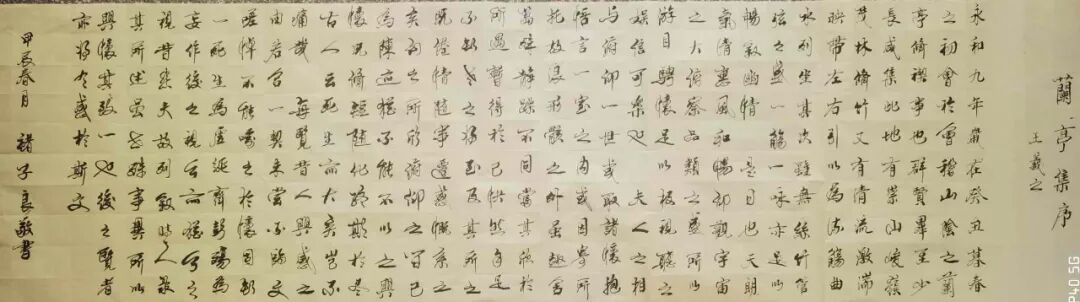 蘭亭集序
王羲之
永和九年歲在癸丑暮春
之初會於會稽山陰之蘭
亭脩禊事也群賢畢至少
長咸集此地有崇山峻嶺
茂林脩竹又有清流激湍
映帶左右引以為流觴曲
水列坐其次雖無絲竹管
弦之盛一觴一詠亦足以
暢敘幽情是日也天朗
氣清惠風和暢仰觀宇宙
之大俯察品類之盛所以
遊目騁懷足以極視聽之
娛信可樂也夫人之相
與俯仰一世或取諸懷抱
悟言一室之內或因寄所
託放浪形骸之外雖趣舍
萬殊靜躁不同當其欣於
所遇暫得於己快然自足
不知老之將至及其所之
既倦情隨事遷感慨係之
矣向之所欣俯仰之間已
為陳迹猶不能不以之興
懷況脩短隨化終期於盡
古人云死生亦大矣豈不
痛哉每覽昔人興感之
由若合一契未嘗不臨文
嗟悼不能喻之於懷固知
一死生為虛誕齊彭殤為
妄作後之視今亦猶今之
視昔悲夫故列敘時人錄
其所述雖世殊事異所以
興懷其致一也後之覽者
亦將有感於斯文
甲辰春月 褚子良敬書
P40 5G